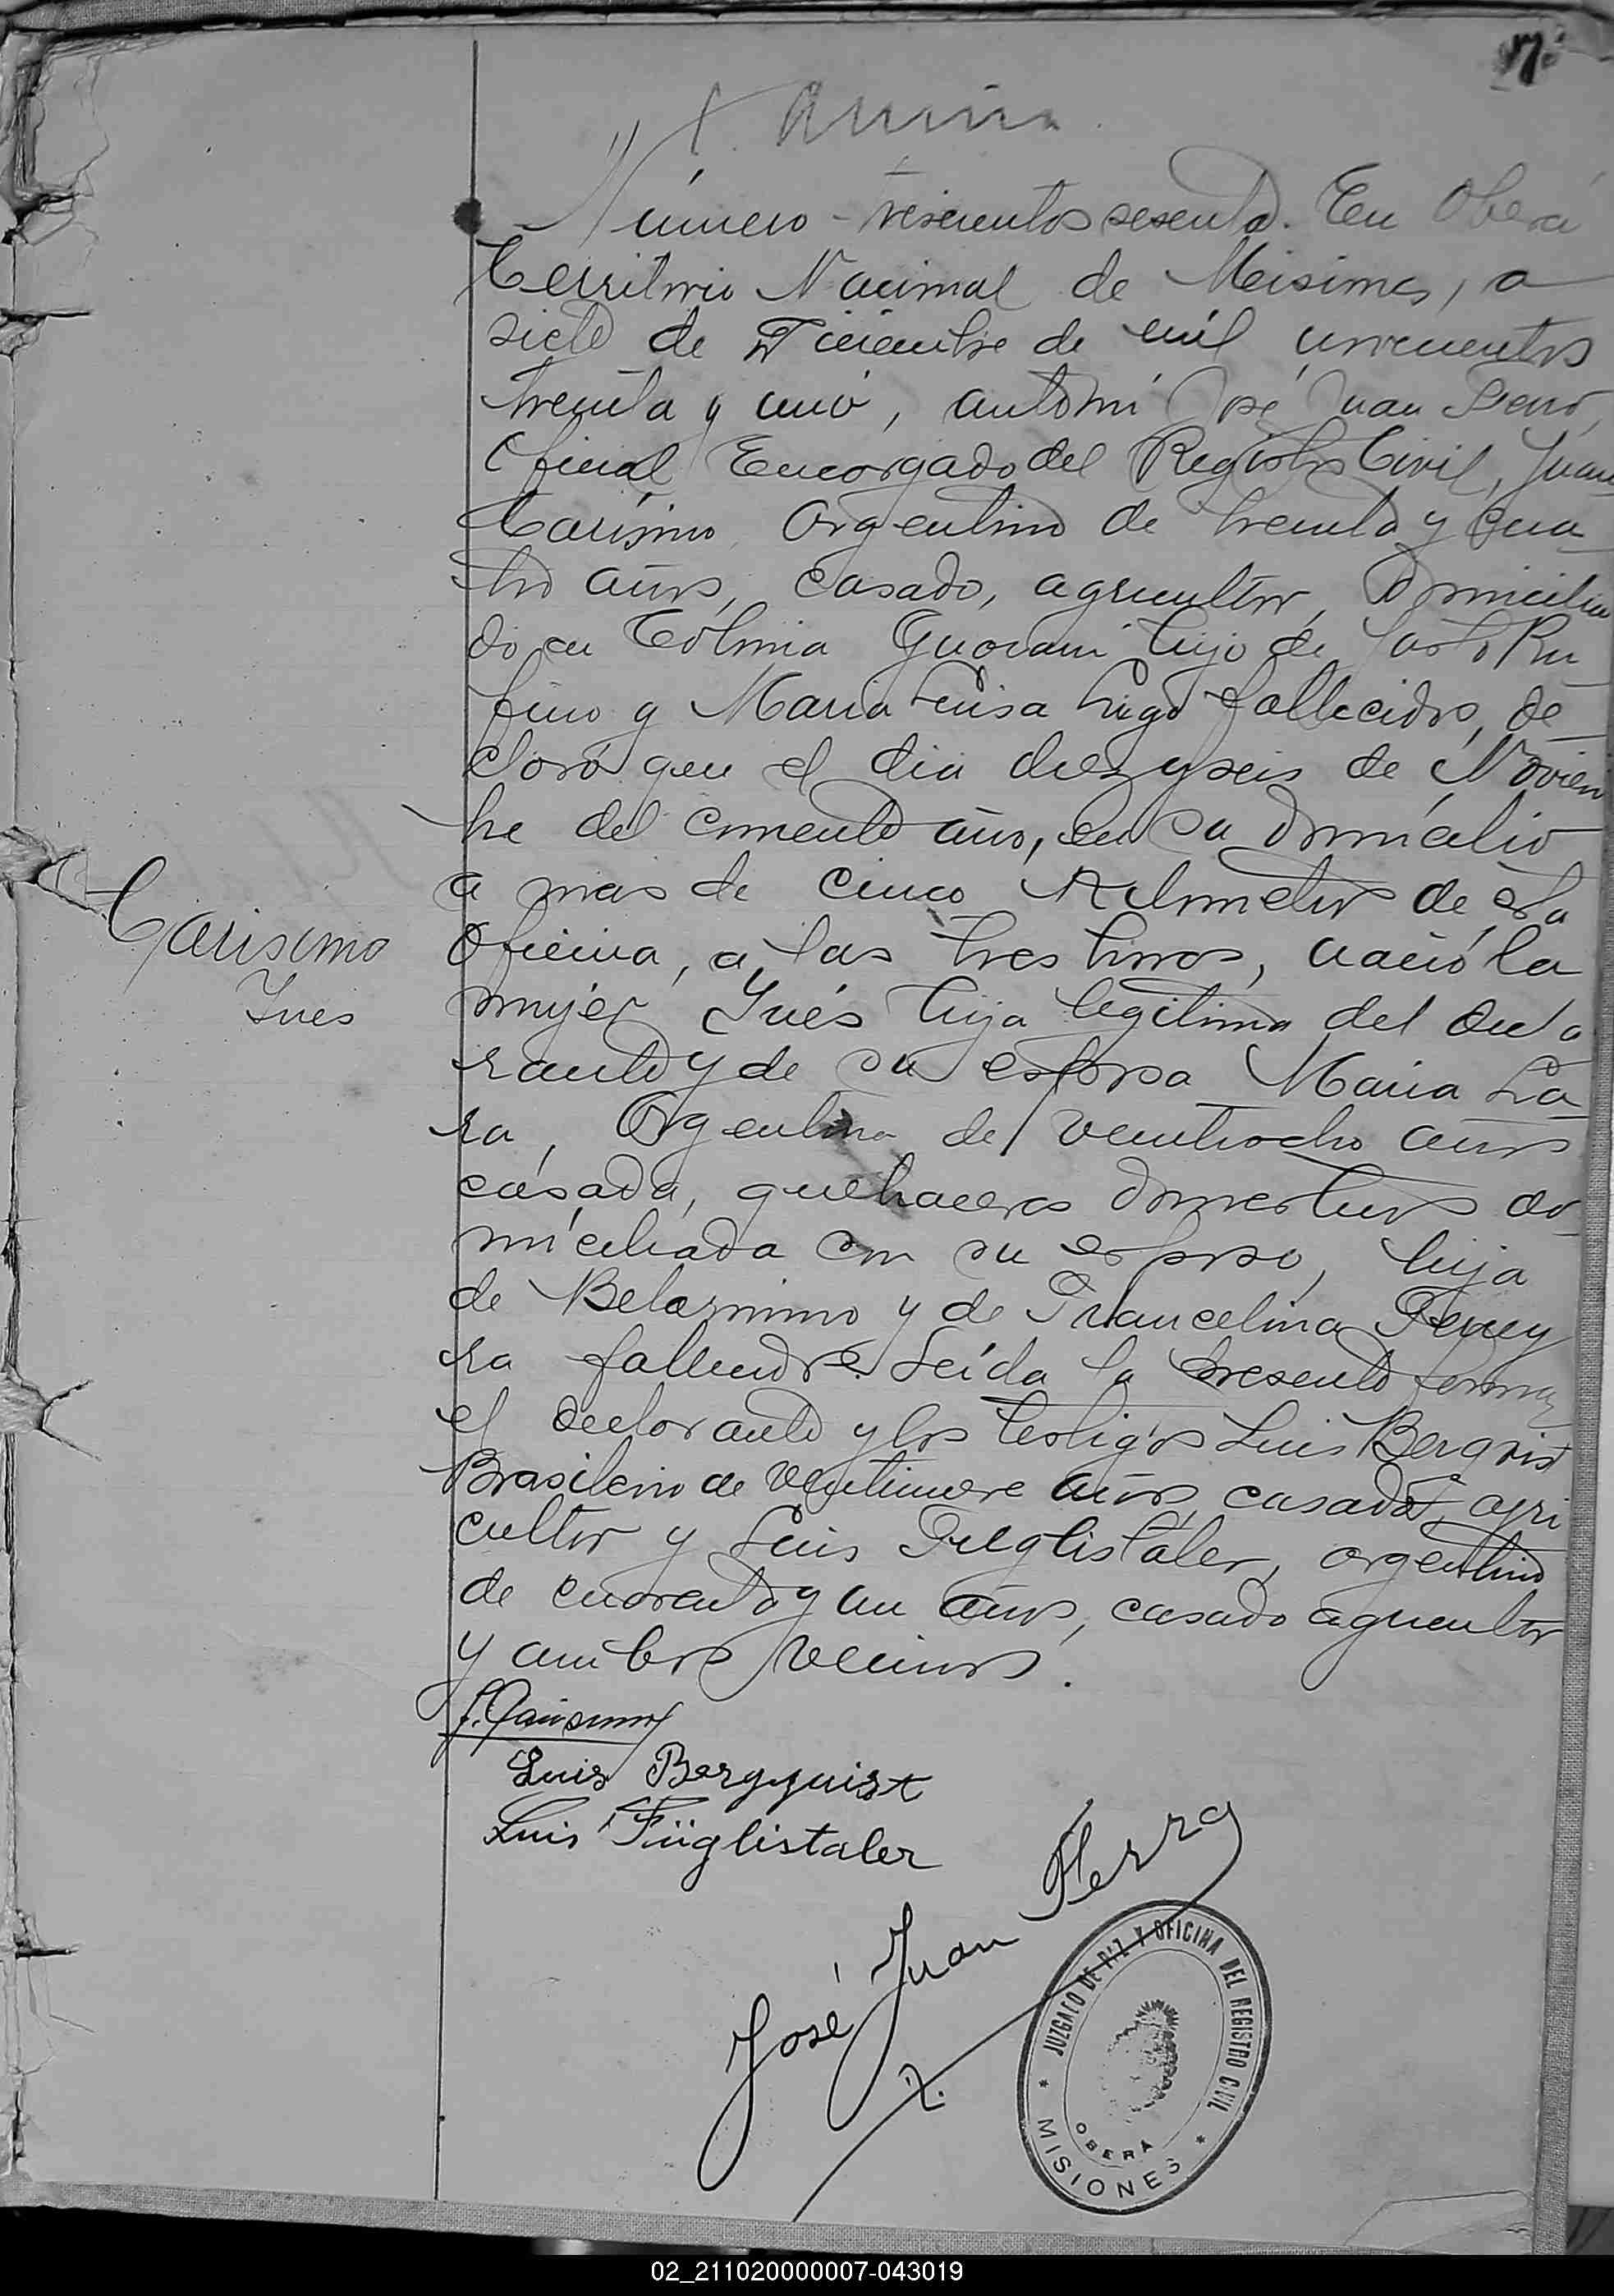 Número trescientos sesenta. En Oberá
Territorio Nacional de Misiones, a
siete de Diciembre de mil novecientos
treinta y uno, ante mi José Juan Ferro,
Oficial Encargado del Registro Civil, Juan
Carísimo, Argentino de treinta y cua
tro años, casado, agricultor, domicilia
do en Colonia Guarani hijo de Ru
fino y Maria Luisa Lugo fallecidos, de
claró que el dia diez y seis de Noviem
bre del corriente año, en su domicilio
a mas de cinco kilometros de esta
Oficina, a las tres horas, nació la
mujer Inés hija legitima del decla
rante y de su esposa Maria La
ra, Argentina de veintiocho años
casada, quehaceres domesticos do
miciliada con su esposo, hija
de Belarmino y de Francelina Perey
ra fallecidos. Leída la presente firman
el declarante y los testigos Luis Bergvist
Brasilero de veintinueve años, casado, agri
cultor y Luis Fueglistaler, argentino
de cuarenta y un años, casado agricultor
y ambos vecinos.
Carisimo
Ines
J. Carisimo
Luis Bergquist
Luis Füglistaler
José Juan Ferro
JUZGADO DE PAZ Y OFICINA DEL REGISTRO CIVIL
OBERA
* MISIONES *
02_211020000007-043019